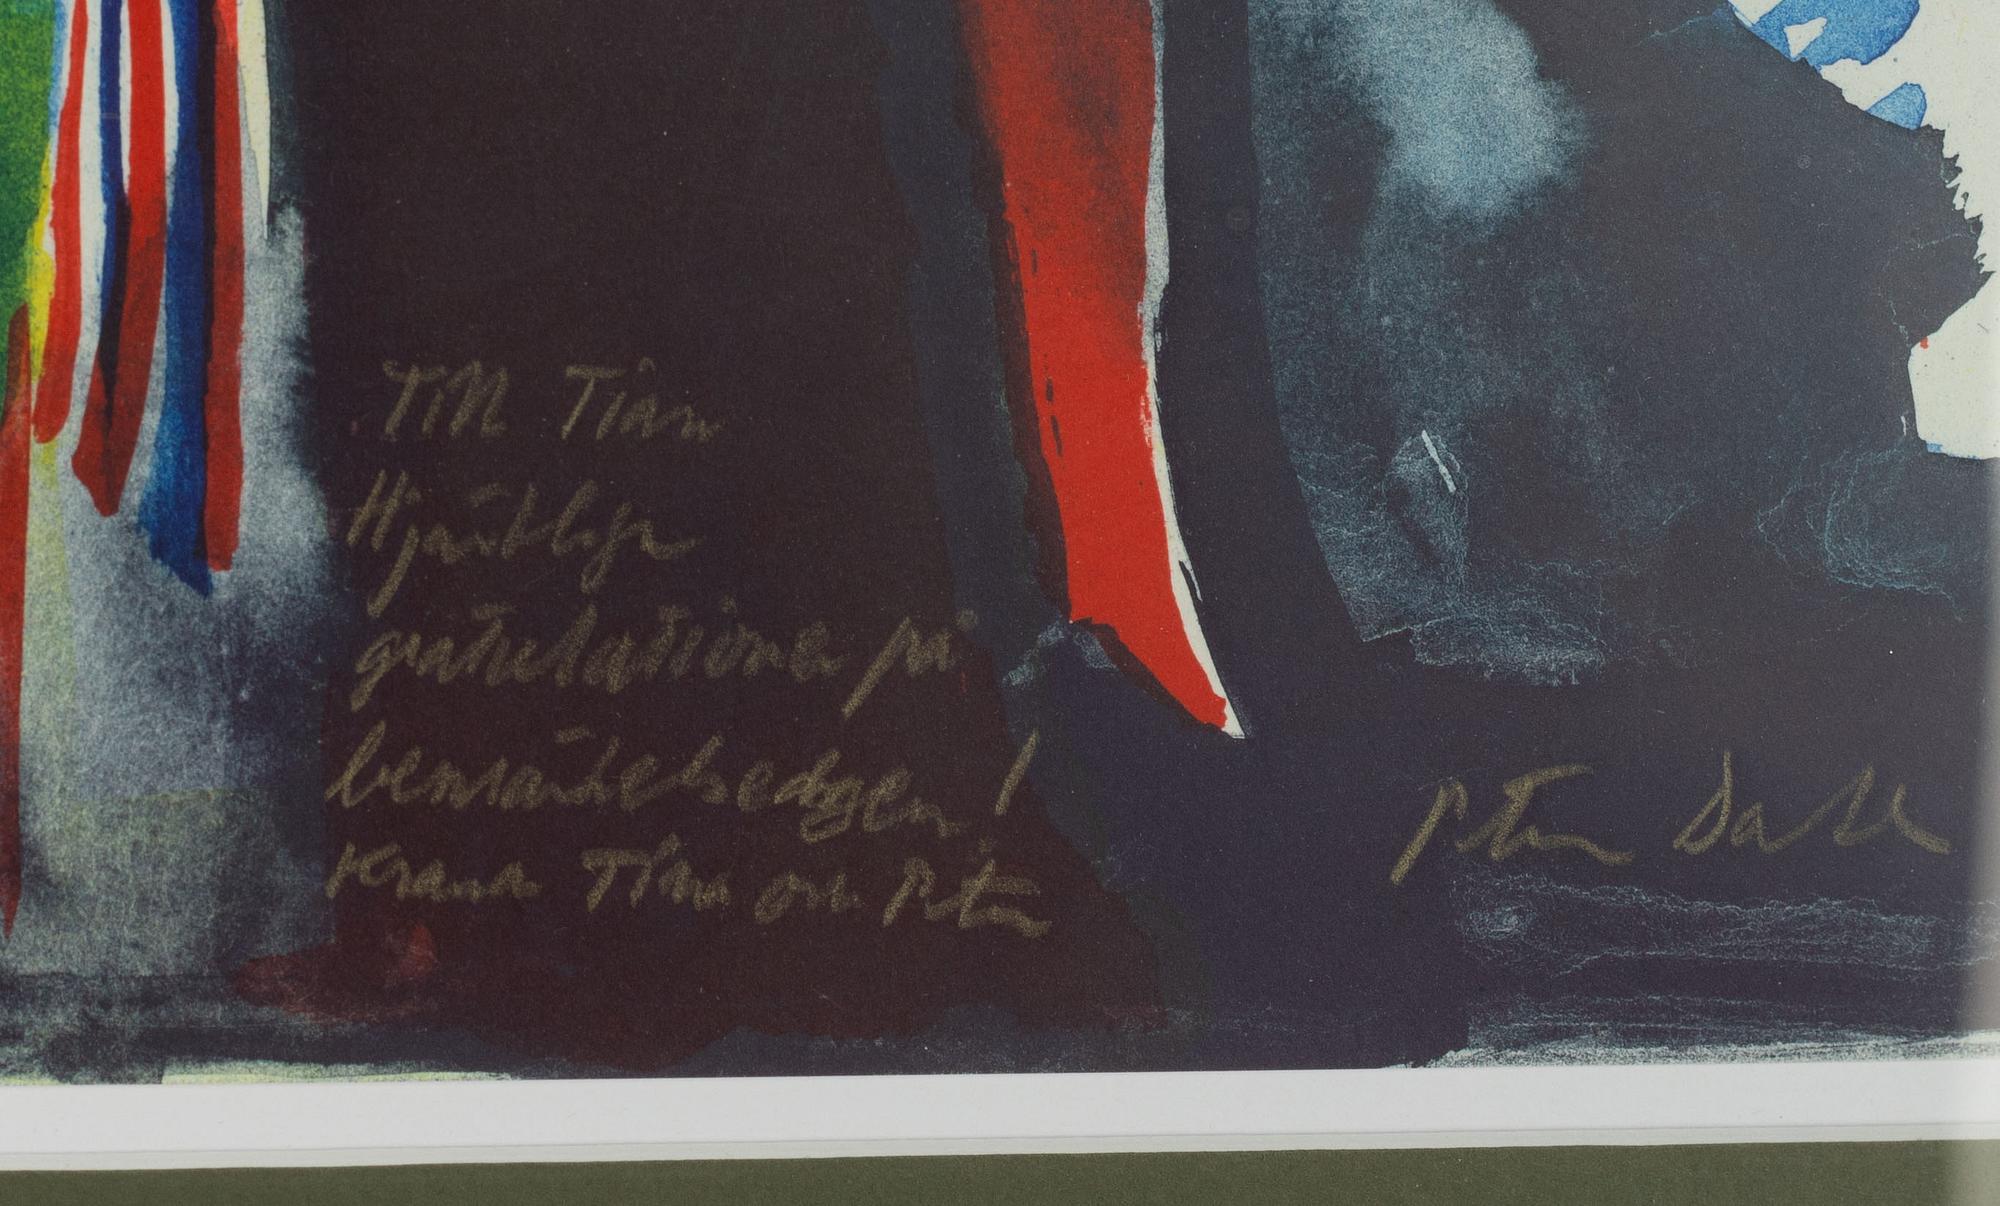 Till Tian
Hjärtliga
gratulationer på
bemärkelsedagen!
Kram Tina och Peter
Peter Dahl